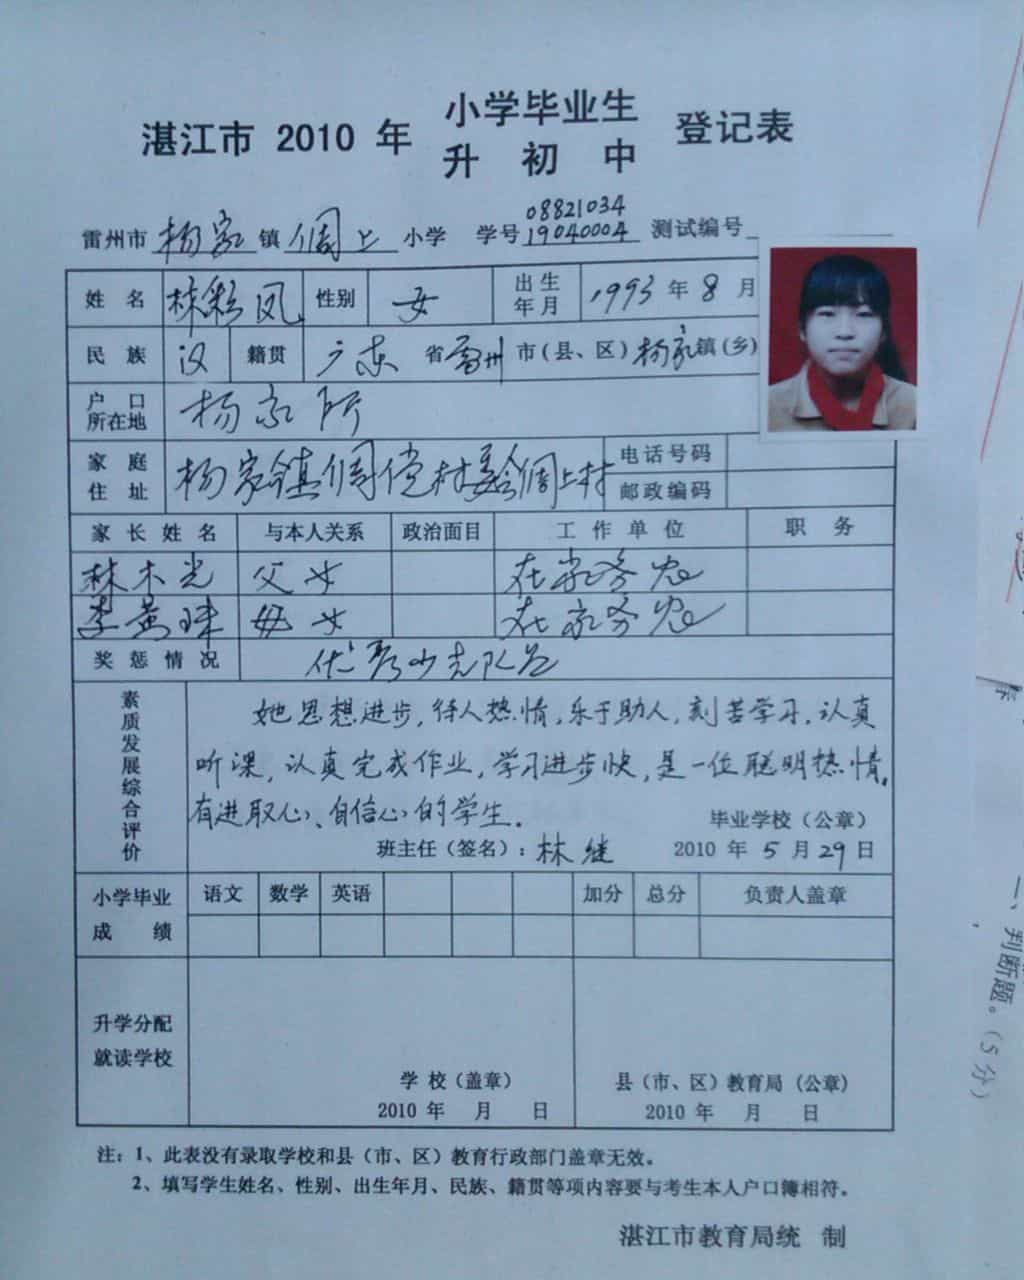 湛江市 2010 年 小学毕业生 升初中 登记表
08821034
雷州市 杨家 镇 倜上 小学 学号 19040004 测试编号
姓名 林彩凤 性别 女 出生年月 1993 年 8 月
民族 汉 籍贯 广东 省 雷州 市(县、区) 杨家 镇(乡)
户口所在地 杨家所
家庭住址 杨家镇 村 倜上村 电话号码
邮政编码
家长姓名 与本人关系 政治面目 工作单位 职务
林木光 父女 在家务农
李黄球 母女 在家务农
奖惩情况 优秀少先队员
素质发展综合评价
她思想进步,待人热情,乐于助人,刻苦学习,认真
听课,认真完成作业,学习进步快,是一位聪明热情,
有进取心、自信心的学生.
毕业学校(公章)
班主任(签名): 林继 2010 年 5 月 29 日
小学毕业成绩 语文 数学 英语 加分 总分 负责人盖章
升学分配
就读学校
学校(盖章) 县(市、区)教育局(公章)
2010 年 月 日 2010 年 月 日
注:1、此表没有录取学校和县(市、区)教育行政部门盖章无效。
2、填写学生姓名、性别、出生年月、民族、籍贯等项内容要与考生本人户口簿相符。
湛江市教育局统 制
一、判断题。(5分)